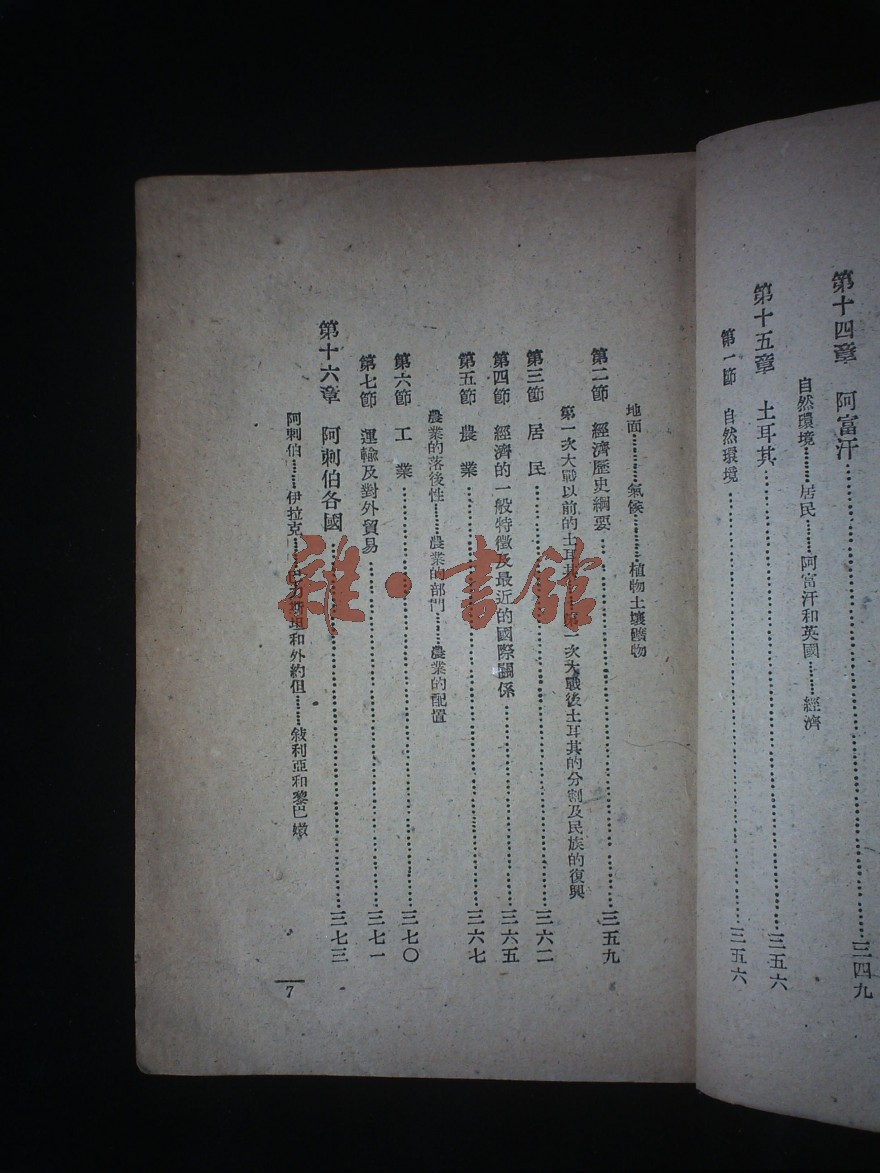 第十四章 阿富汗……三四九
自然環境………居民………阿富汗和英國………經濟
第十五章 土耳其……三五六
第一節 自然環境……三五六
地面………氣候………植物土壤礦物
第二節 經濟歷史綱要……三五九
第一次大戰以前的土耳其………第一次大戰後土耳其的分割及民族的復興
第三節 居民……三六二
第四節 經濟的一般特徵及最近的國際關係……三六五
第五節 農業……三六七
農業的落後性………農業的部門………農業的配置
第六節 工業……三七〇
第七節 運輸及對外貿易……三七一
第十六章 阿剌伯各國……三七三
阿剌伯………伊拉克………巴力斯坦和外約但………敍利亞和黎巴嫩
7
雜·書館